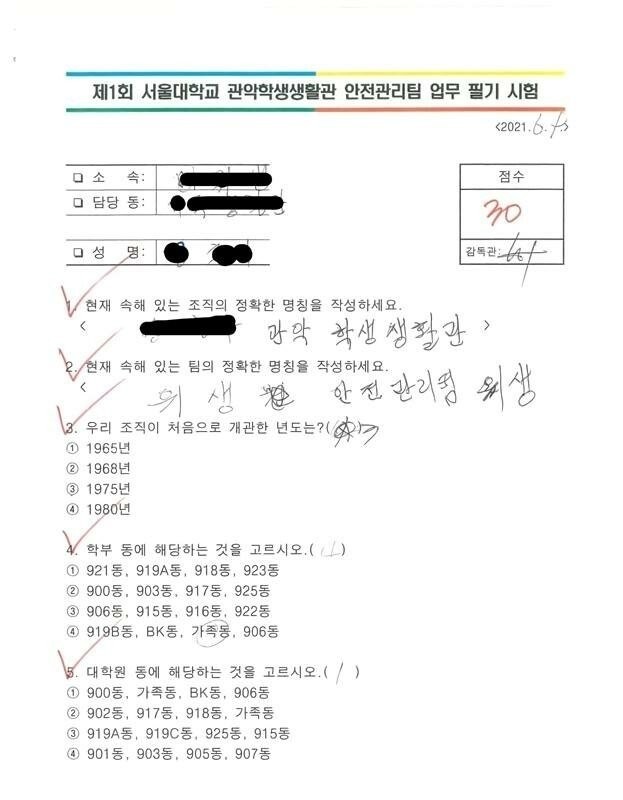 제1회 서울대학교 관악학생생활관 안전관리팀 업무 필기 시험
<2021.6.>
❑ 소 속:
❑ 담당 동:
❑ 성 명:
점수
30
감독관:
1. 현재 속해 있는 조직의 정확한 명칭을 작성하세요.
< 관악 학생생활관 >
2. 현재 속해 있는 팀의 정확한 명칭을 작성하세요.
< 위생 안전관리팀 위생
3. 우리 조직이 처음으로 개관한 년도는?( )
① 1965년
② 1968년
③ 1975년
④ 1980년
4. 학부 동에 해당하는 것을 고르시오.( )
① 921동, 919A동, 918동, 923동
② 900동, 903동, 917동, 925동
③ 906동, 915동, 916동, 922동
④ 919B동, BK동, 가족동, 906동
5. 대학원 동에 해당하는 것을 고르시오.( / )
① 900동, 가족동, BK동, 906동
② 902동, 917동, 918동, 가족동
③ 919A동, 919C동, 925동, 915동
④ 901동, 903동, 905동, 907동